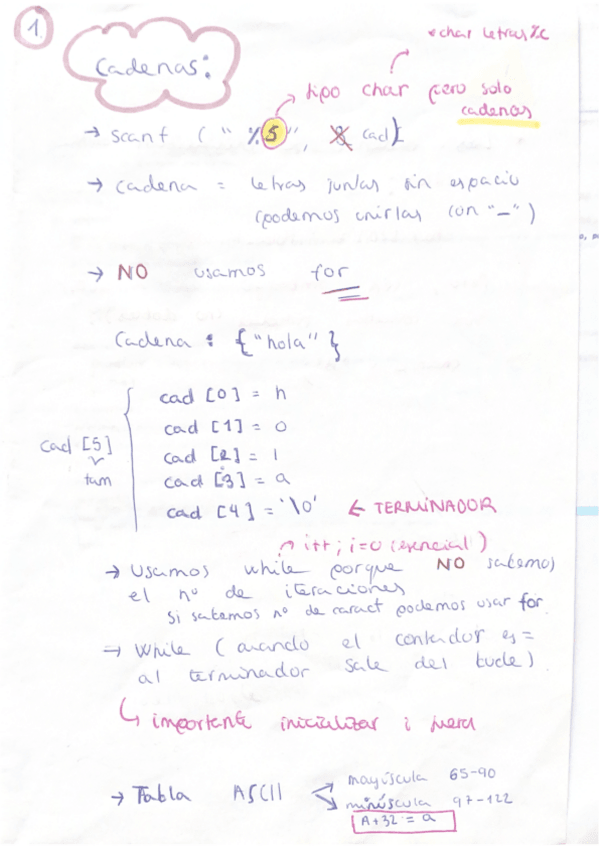 1
* char letras %c
Cadenas:
tipo char pero solo
cadenas
→ scanf ( " %5 ", & cad)
→ cadena = letras juntas sin espacio
(podemos unirlas con "_")
→ NO usamos for
Cadena : {"hola"}
cad [5]
tam
cad [0] = h
cad [1] = o
cad [2] = l
cad [3] = a
cad [4] = '\0' ← TERMINADOR
i++; i=0 (esencial)
→ Usamos while porque NO sabemos
el nº de iteraciones
Si sabemos nº de caract podemos usar for.
→ While (cuando el contador es =
al terminador sale del bucle)
importante inicializar i fuera
→ Tabla ASCII
mayúscula 65-90
minúscula 97-122
A+32 = a